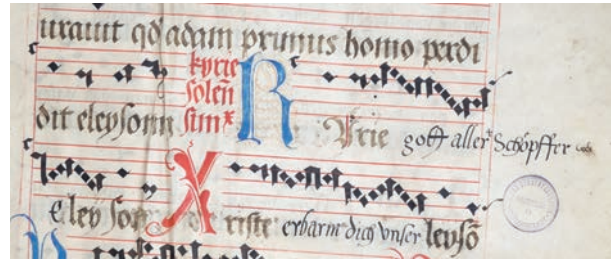 urauit qd adam primus homo perdi
kyrie
solen
dit eleyson
K yrie gott aller Schöpffer
eleyson
X riste erbarm dich vnser leysō